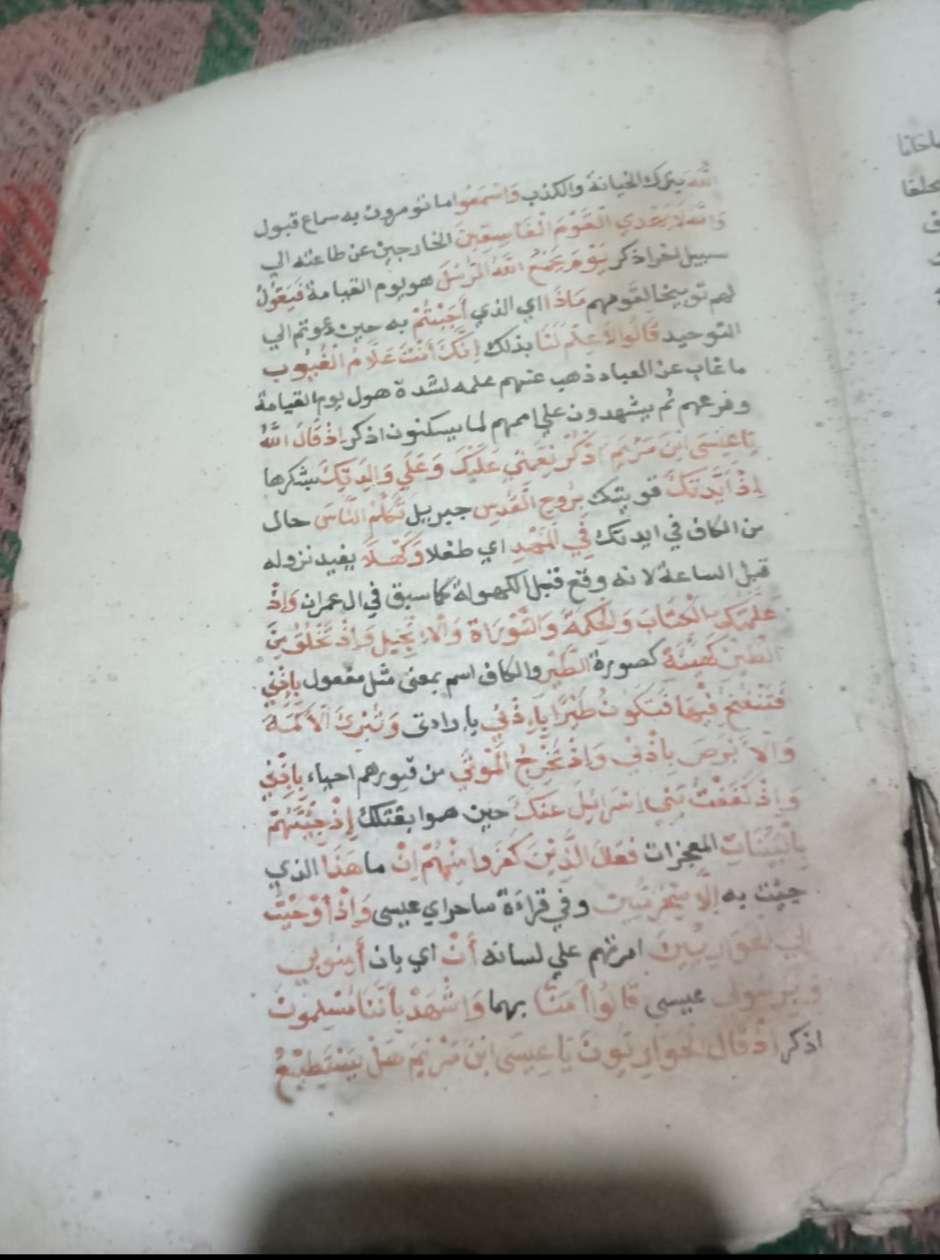 الله بترك الخيانة والكذب وَاسْمَعُوا ما تؤمرون به سماع قبول
وَاللَّهُ لَا يَهْدِي الْقَوْمَ الْفَاسِقِينَ الخارجين عن طاعته الي
سبيل الخير اذكر يَوْمَ يَجْمَعُ اللَّهُ الرُّسُلَ هو يوم القيامة فَيَقُولُ
لهم توبيخا لقومهم مَاذَا اي الذي أُجِبْتُمْ به حين دعوتم الي
التوحيد قَالُوا لَا عِلْمَ لَنَا بذلك إِنَّكَ أَنْتَ عَلَّامُ الْغُيُوبِ
ما غاب عن العباد ذهب عنهم علمه لشدة هول يوم القيامة
وفزعهم ثم يشهدون علي اممهم لما يسكنون اذكر إِذْ قَالَ اللَّهُ
يَا عِيسَى ابْنَ مَرْيَمَ اذْكُرْ نِعْمَتِي عَلَيْكَ وَعَلَي وَالِدَتِكَ بشكرها
إِذْ أَيَّدْتُكَ قويتك بِرُوحِ الْقُدُسِ جبريل تُكَلِّمُ النَّاسَ حال
من الكاف في ايدتك فِي الْمَهْدِ اي طفلا وَكَهْلًا يفيد نزوله
قبل الساعة لانه وقع قبل الكهولة كما سبق في ال عمران وَإِذْ
عَلَّمْتُكَ الْكِتَابَ وَالْحِكْمَةَ وَالتَّوْرَاةَ وَالْإِنْجِيلَ وَإِذْ تَخْلُقُ مِنَ
الطِّينِ كَهَيْئَةِ كصورة الطَّيْرِ والكاف اسم بمعنى مثل مفعول بِإِذْنِي
فَتَنْفُخُ فِيهَا فَتَكُونُ طَيْرًا بِإِذْنِي بارادتي وَتُبْرِئُ الْأَكْمَهَ
وَالْأَبْرَصَ بِإِذْنِي وَإِذْ تُخْرِجُ الْمَوْتَي من قبورهم احياء بِإِذْنِي
وَإِذْ كَفَفْتُ بَنِي إِسْرَائِيلَ عَنْكَ حين هموا بقتلك إِذْ جِئْتَهُمْ
بِالْبَيِّنَاتِ المعجزات فَقَالَ الَّذِينَ كَفَرُوا مِنْهُمْ إِنْ ما هَذَا الذي
جيت به إِلَّا سِحْرٌ مُبِينٌ وفي قراءة ساحر اي عيسى وَإِذْ أَوْحَيْتُ
إِلَي الْحَوَارِيِّينَ امرتهم علي لسانه أَنْ اي بان آمِنُوا بِي
وَبِرَسُولِي عيسى قَالُوا آمَنَّا بهما وَاشْهَدْ بِأَنَّنَا مُسْلِمُونَ
اذكر إِذْ قَالَ الْحَوَارِيُّونَ يَا عِيسَى ابْنَ مَرْيَمَ هَلْ يَسْتَطِيعُ